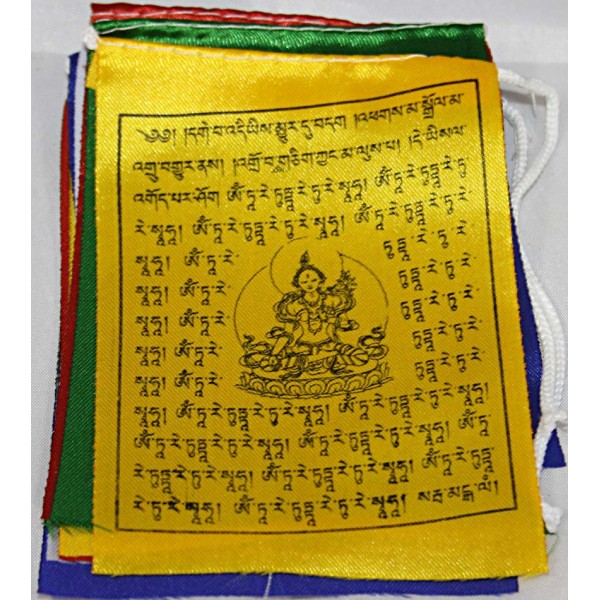 ༄༅། །དགེ་བ་འདི་ཡིས་མྱུར་དུ་བདག །འཕགས་མ་སྒྲོལ་མ་
འགྲུ་བགྱུར་ནས། །འགྲོ་བ་གཅིག་ཀྱང་མ་ལུས་པ། །དེ་ཡིསལ་
འགོད་པར་ཤོག ཨོཾ་ཏཱ་རེ་ཏུཏྟཱ་རེ་ཏུ་རེ་སྭཱཧཱ། ཨོཾ་ཏཱ་རེ་ཏུཏྟཱ་རེ་ཏུ་
རེ་སྭཱཧཱ། ཨོཾ་ཏཱ་རེ་ཏུཏྟཱ་རེ་ཏུ་རེ་སྭཱཧཱ། ཨོཾ་ཏཱ་རེ་ཏུཏྟཱ་རེ་ཏུ་རེ་
སྭཱཧཱ། ཨོཾ་ཏཱ་རེ་ ཏུཏྟཱ་རེ་ཏུ་རེ་
སྭཱཧཱ། ཨོཾ་ཏཱ་རེ་ ཏུཏྟཱ་རེ་ཏུ་རེ་
སྭཱཧཱ། ཨོཾ་ཏཱ་རེ་ ཏུཏྟཱ་རེ་ཏུ་རེ་
སྭཱཧཱ། ཨོཾ་ཏཱ་རེ་ ཏུཏྟཱ་རེ་ཏུ་རེ་
སྭཱཧཱ། ཨོཾ་ཏཱ་རེ་ ཏུཏྟཱ་རེ་ཏུ་རེ་
སྭཱཧཱ། ཨོཾ་ཏཱ་རེ་ཏུཏྟཱ་རེ་ཏུ་རེ་སྭཱཧཱ། ཨོཾ་ཏཱ་རེ་ཏུཏྟཱ་རེ་ཏུ་རེ་སྭཱཧཱ།
ཨོཾ་ཏཱ་རེ་ཏུཏྟཱ་རེ་ཏུ་རེ་སྭཱཧཱ། ཨོཾ་ཏཱ་རེ་ཏུཏྟཱ་རེ་ཏུ་རེ་སྭཱཧཱ། ཨོཾ་ཏཱ་
རེ་ཏུཏྟཱ་རེ་ཏུ་རེ་སྭཱཧཱ། ཨོཾ་ཏཱ་རེ་ཏུཏྟཱ་རེ་ཏུ་རེ་སྭཱཧཱ། ཨོཾ་ཏཱ་རེ་ཏུཏྟཱ་
རེ་ཏུ་རེ་སྭཱཧཱ། ཨོཾ་ཏཱ་རེ་ཏུཏྟཱ་རེ་ཏུ་རེ་སྭཱཧཱ། སརྦ་མངྒ་ལཾ།